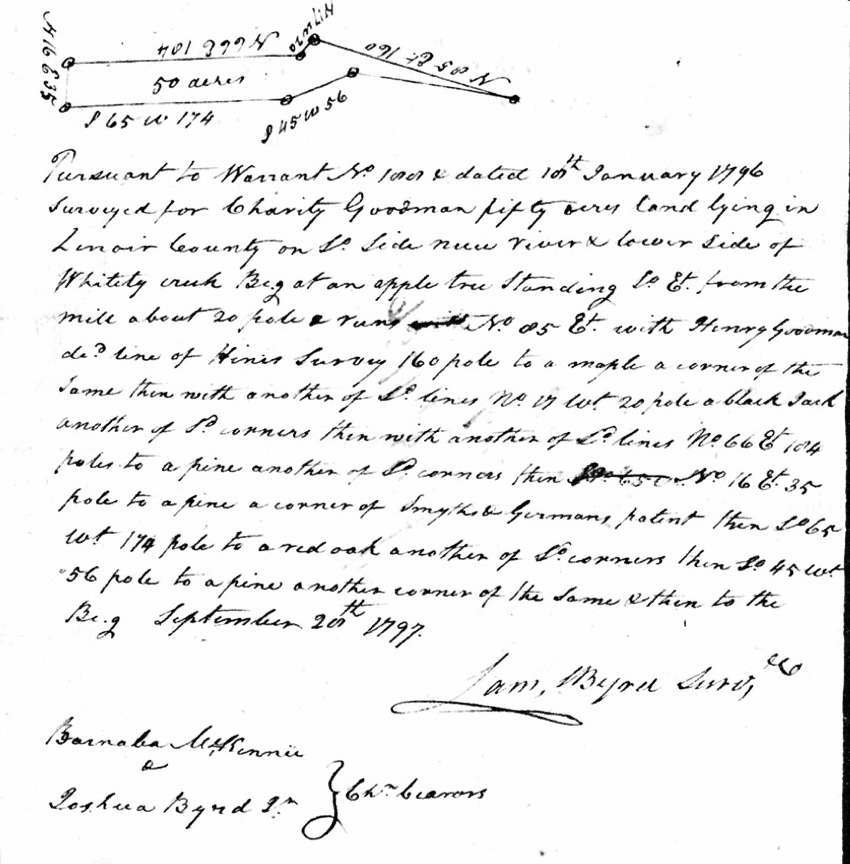 N 16 E 35
N 66 E 184
N 17 W 20
N 85 Et. 160
50 acres
S 65 W 174
S 45 W 56
Pursuant to Warrant No. 188 & dated 18th January 1796
Surveyed for Charity Goodman fifty acres land lying in
Lenoir County on So. Side neuse river & lower Side of
Whitely creek Beg at an apple tree Standing So. Et. from the
mill about 20 pole & runs No. 85 Et. with Henry Goodman
decd line of Hines Survey 160 pole to a maple a corner of the
Same then with another of Sd. lines No. 17 Wt. 20 pole a black Jack
another of Sd. corners then with another of Sd. lines No. 66 Et. 184
poles to a pine another of Sd. corners then So. 65 No. 16 Et. 35
pole to a pine a corner of Smyth & Germans patent then So. 65
Wt. 174 pole to a red oak another of Sd. corners then So. 45 Wt.
56 pole to a pine another corner of the Same & then to the
Beg September 28th 1797.
Jam, Byrd Surv,
Barnaba McKinnie
&
Joshua Byrd Jr. } Chn. bearors